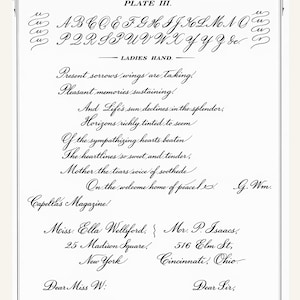 PLATE III.
A B C D E F G H I J K L M N O
P Q R S T U V W X Y Y Z &c.
LADIES HAND.
Present sorrows wings are taking,
Pleasant memories sustaining
And Life's sun declines in the splendor,
Horizons richly tinted to seem
Of the sympathizing hearts beaten
The heartlines so sweet and tender;
Mother the tears voice of soothed
On the welcome home of peace! G. Wm.
Capella's Magazine.
Miss Ella Wellsford, Mr. P. Isaacs,
25 Madison Square, 576 Elm St,
New York Cincinnati, Ohio
Dear Miss W: Dear Sir;